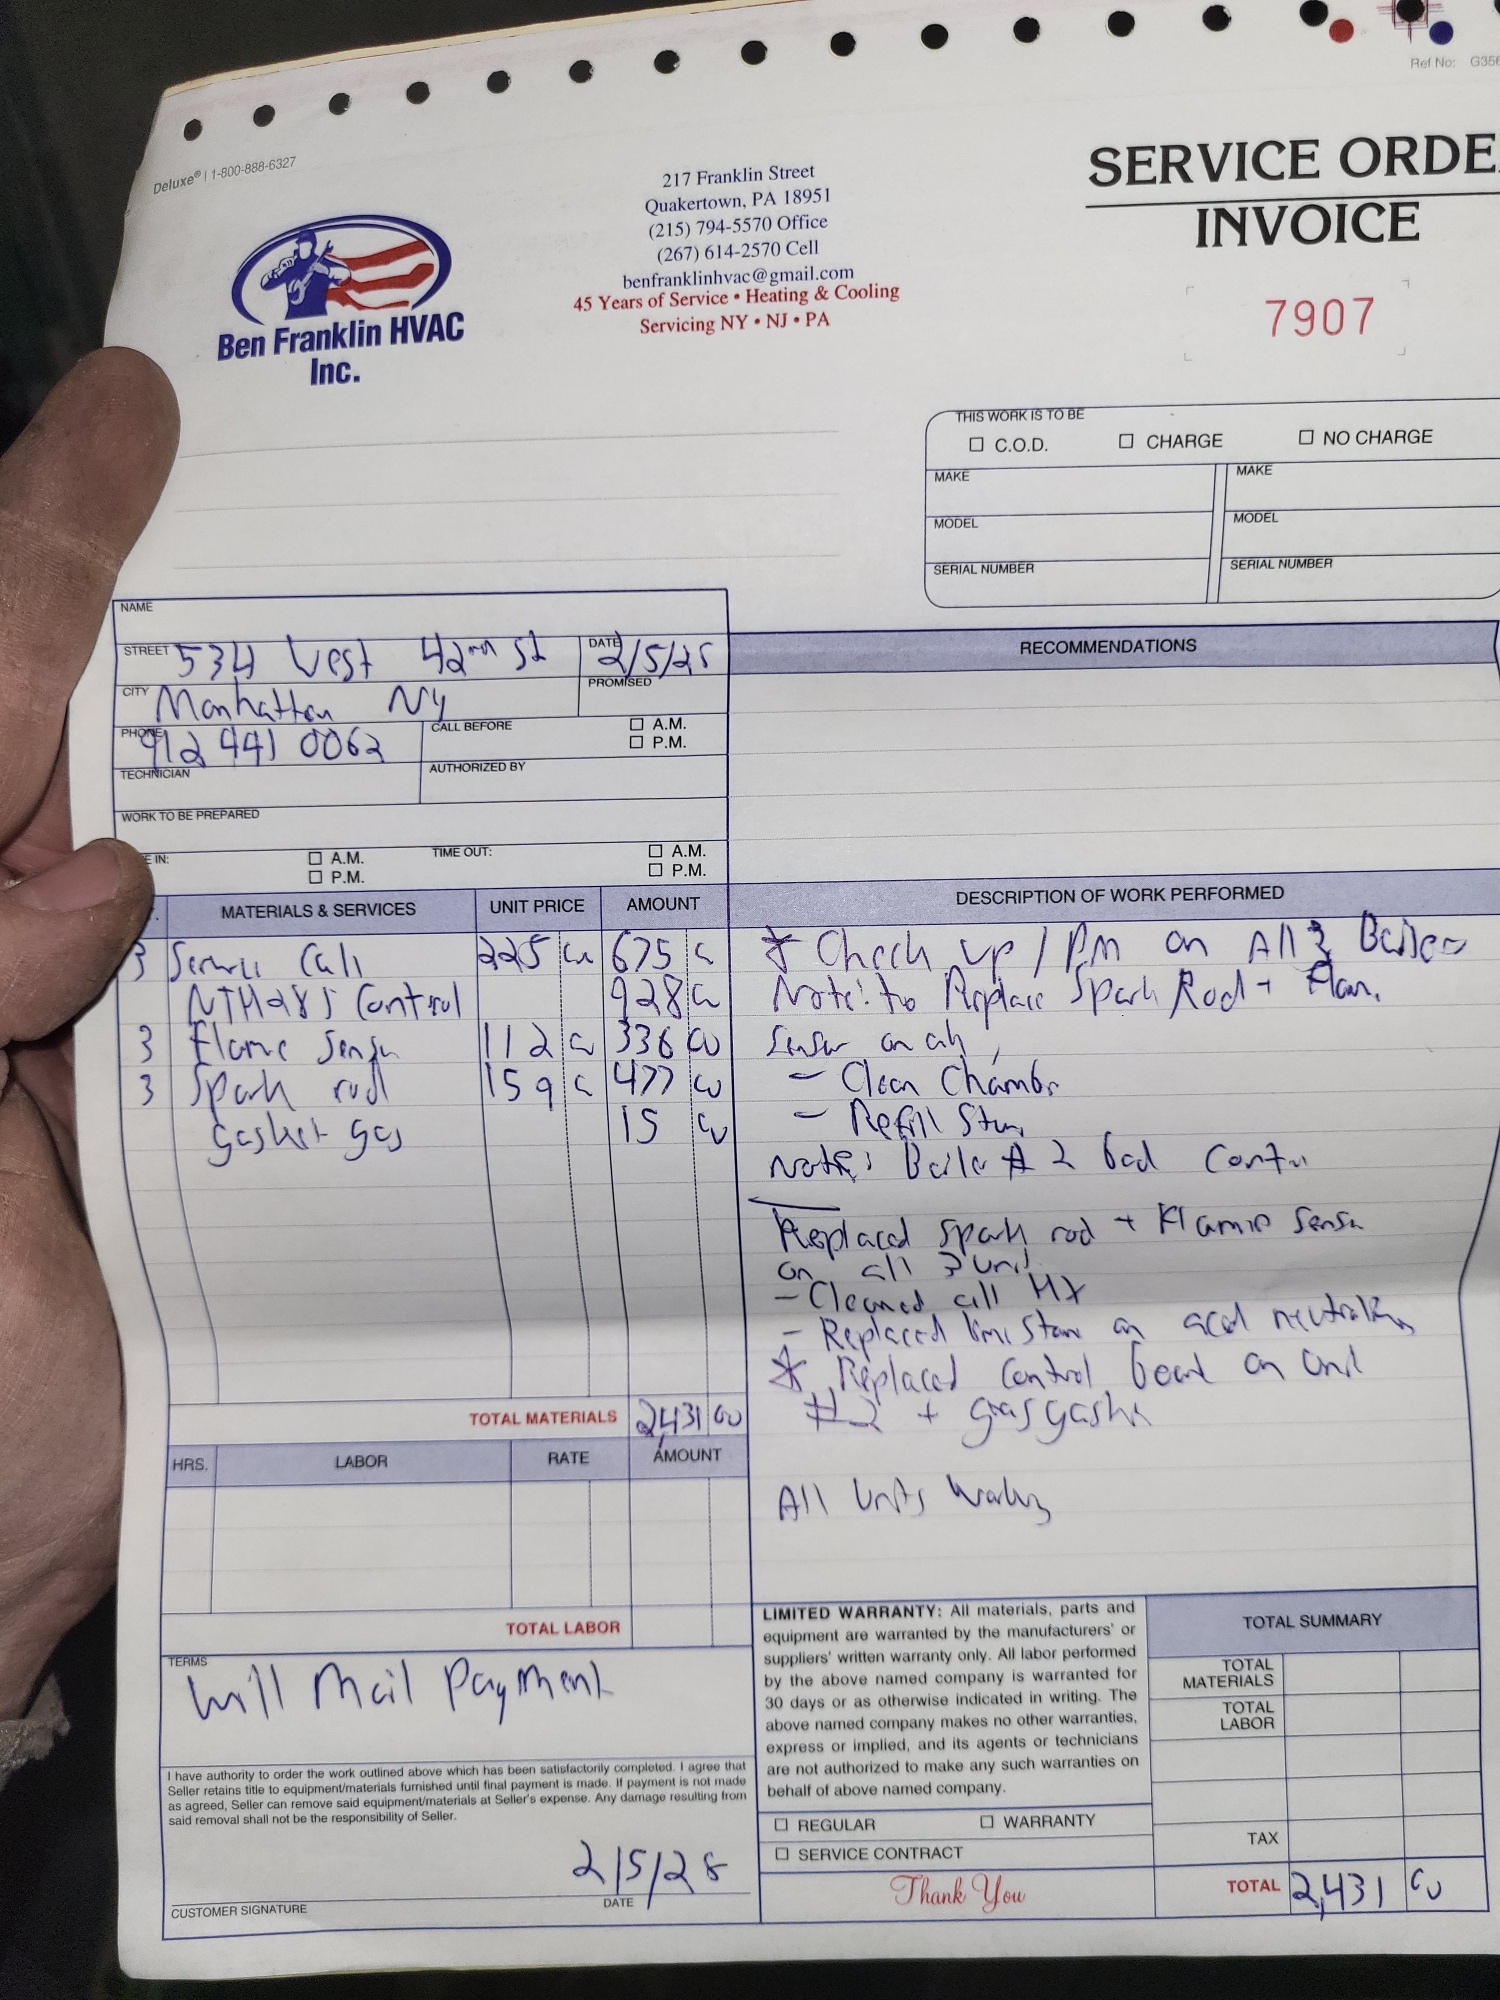 Ref No: G356
Deluxe® | 1-800-888-6327
SERVICE ORDE
INVOICE
7907
Ben Franklin HVAC
Inc.
217 Franklin Street
Quakertown, PA 18951
(215) 794-5570 Office
(267) 614-2570 Cell
benfranklinhvac@gmail.com
45 Years of Service • Heating & Cooling
Servicing NY • NJ • PA
THIS WORK IS TO BE
C.O.D. CHARGE NO CHARGE
MAKE MAKE
MODEL MODEL
SERIAL NUMBER SERIAL NUMBER
NAME
STREET 534 West 42nd St DATE 2/5/25
CITY Manhattan NY PROMISED
PHONE 912 441 0062 CALL BEFORE A.M.
P.M.
TECHNICIAN AUTHORIZED BY
WORK TO BE PREPARED
E IN: A.M. TIME OUT: A.M.
P.M. P.M.
RECOMMENDATIONS
MATERIALS & SERVICES UNIT PRICE AMOUNT
3 Service Call 225 00 675 00
NTH285 Control 928 00
3 Flame Sensor 112 00 336 00
3 Spark rod 159 00 477 00
gasket gas 15 00
TOTAL MATERIALS 2,431 00
HRS. LABOR RATE AMOUNT
TOTAL LABOR
TERMS
Will Mail Payment
I have authority to order the work outlined above which has been satisfactorily completed. I agree that
Seller retains title to equipment/materials furnished until final payment is made. If payment is not made
as agreed, Seller can remove said equipment/materials at Seller's expense. Any damage resulting from
said removal shall not be the responsibility of Seller.
2/5/28
CUSTOMER SIGNATURE DATE
DESCRIPTION OF WORK PERFORMED
* Check up / PM on All 3 Boilers
Note: to Replace Spark Rod + Flam.
Sensor on all
- Clean Chamber
- Refill Stone
Note: Boiler # 2 bad Control
Replaced Spark rod + Flame Sensor
on all 3 unit
- Cleaned all HX
- Replaced lime Stone on acid neutralizer
* Replaced Control board on Unit
#2 + gas gasket
All Units Working
LIMITED WARRANTY: All materials, parts and
equipment are warranted by the manufacturers' or
suppliers' written warranty only. All labor performed
by the above named company is warranted for
30 days or as otherwise indicated in writing. The
above named company makes no other warranties,
express or implied, and its agents or technicians
are not authorized to make any such warranties on
behalf of above named company.
REGULAR WARRANTY
SERVICE CONTRACT
Thank You
TOTAL SUMMARY
TOTAL
MATERIALS
TOTAL
LABOR
TAX
TOTAL 2,431 00